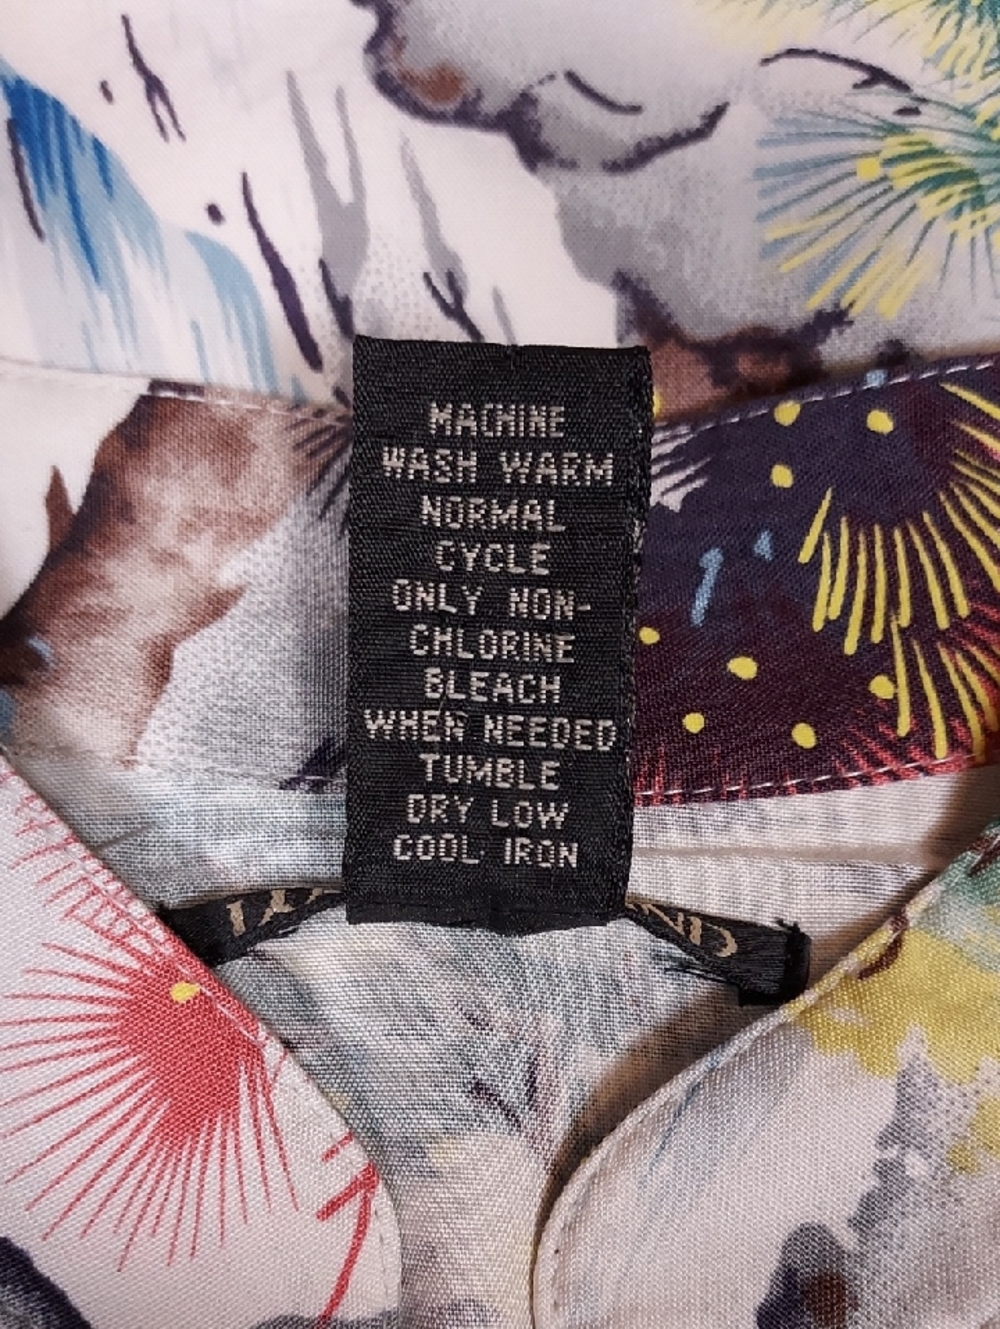 MACHINE
WASH WARM
NORMAL
CYCLE
ONLY NON-
CHLORINE
BLEACH
WHEN NEEDED
TUMBLE
DRY LOW
COOL IRON